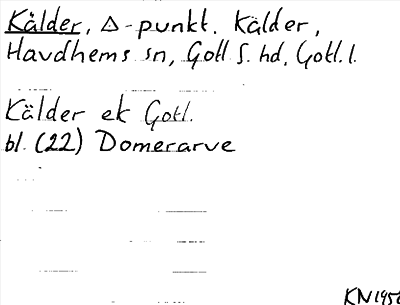 Kälder, Δ-punkt. Kälder,
Havdhems sn, Gotl S. hd, Gotl. l.
Kälder ek Gotl.
bl. (22) Domerarve